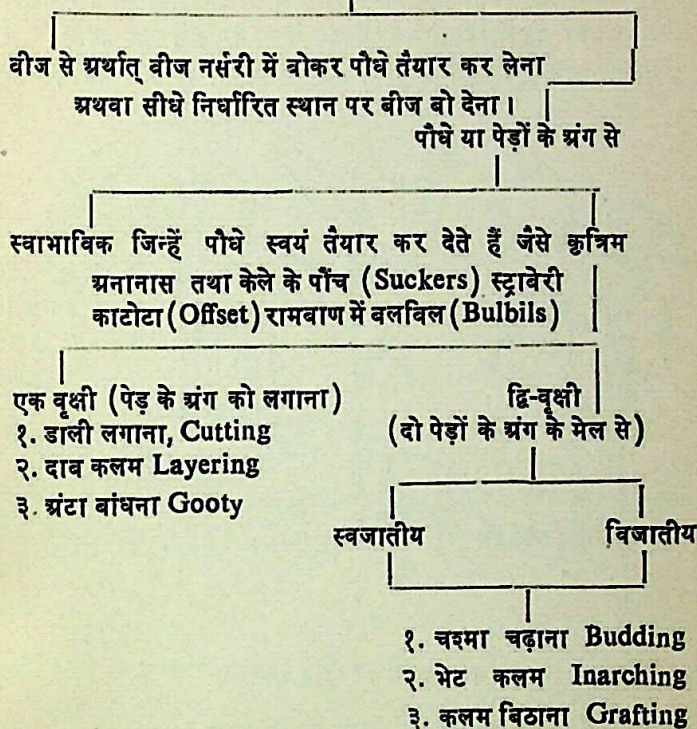 वीज से अर्थात् वीज नर्सरी में बोकर पौधे तैयार कर लेना
अथवा सीधे निर्धारित स्थान पर बीज बो देना।
पौधे या पेड़ों के अंग से
स्वाभाविक जिन्हें पौधे स्वयं तैयार कर देते हैं जैसे कृत्रिम
अनानास तथा केले के पौंच (Suckers) स्ट्रावेरी
काटोटा (Offset) रामबाण में बलविल (Bulbils)
एक वृक्षी (पेड़ के अंग को लगाना)
१. डाली लगाना, Cutting
२. दाब कलम Layering
३. अंटा बांधना Gooty
द्वि-वृक्षी
(दो पेड़ों के अंग के मेल से)
स्वजातीय विजातीय
१. चश्मा चढ़ाना Budding
२. भेट कलम Inarching
३. कलम बिठाना Grafting